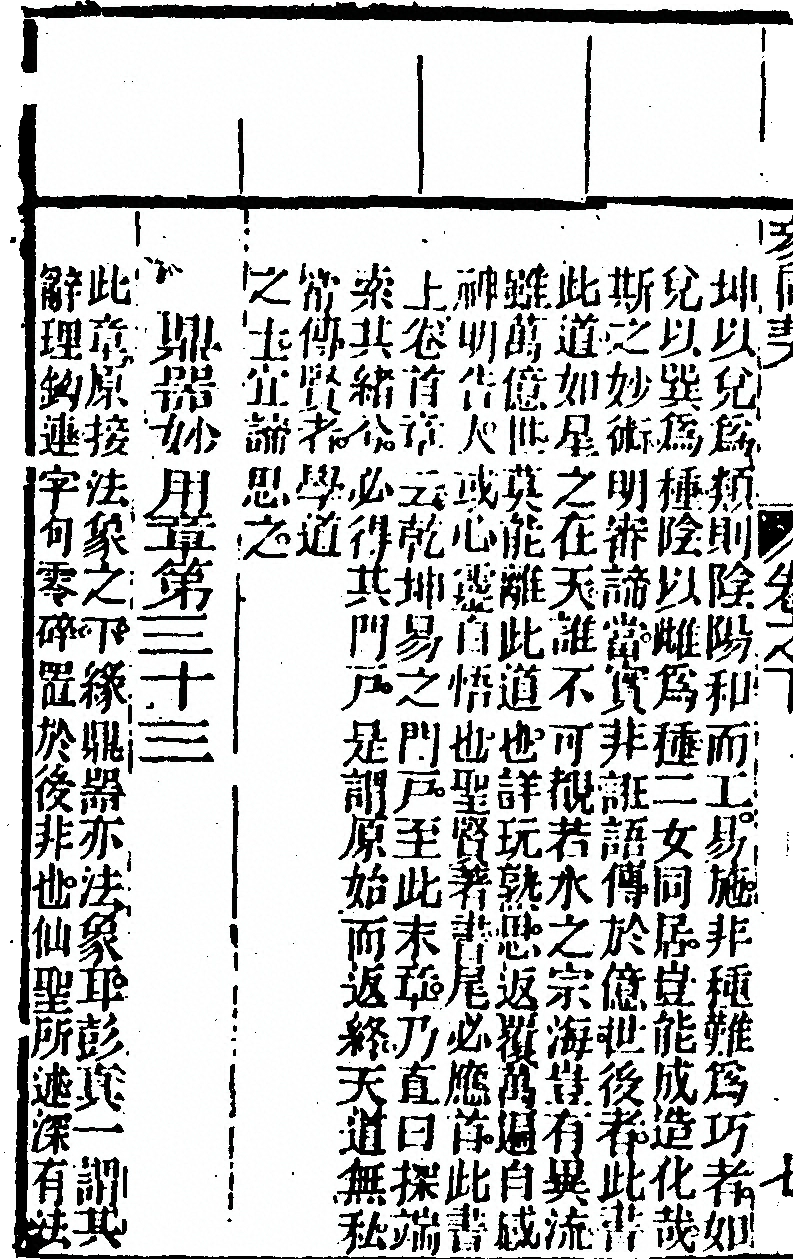 參同契 卷之下 七
坤以兌爲類則陰陽和而工易施非種難爲巧者如
兌以巽爲種陰以雌爲種二女同居豈能成造化哉
斯之妙術明審諦當實非誑語傳於億世後者此書
此道如星之在天誰不可覩若水之宗海豈有異流
雖萬億世莫能離此道也詳玩熟思返覆萬遍自感
神明告人或心靈自悟也聖賢著書尾必應首此書
上卷首章云乾坤易之門戶至此末章乃直曰探端
索其緒兮必得其門戶是謂原始而返終天道無私
常傳賢者學道
之士宜諦思之
鼎器妙用章第三十三
此章原接法象之下緣鼎器亦法象耳彭真一謂其
辭理鉤連字句零碎置於後非也仙聖所述深有法